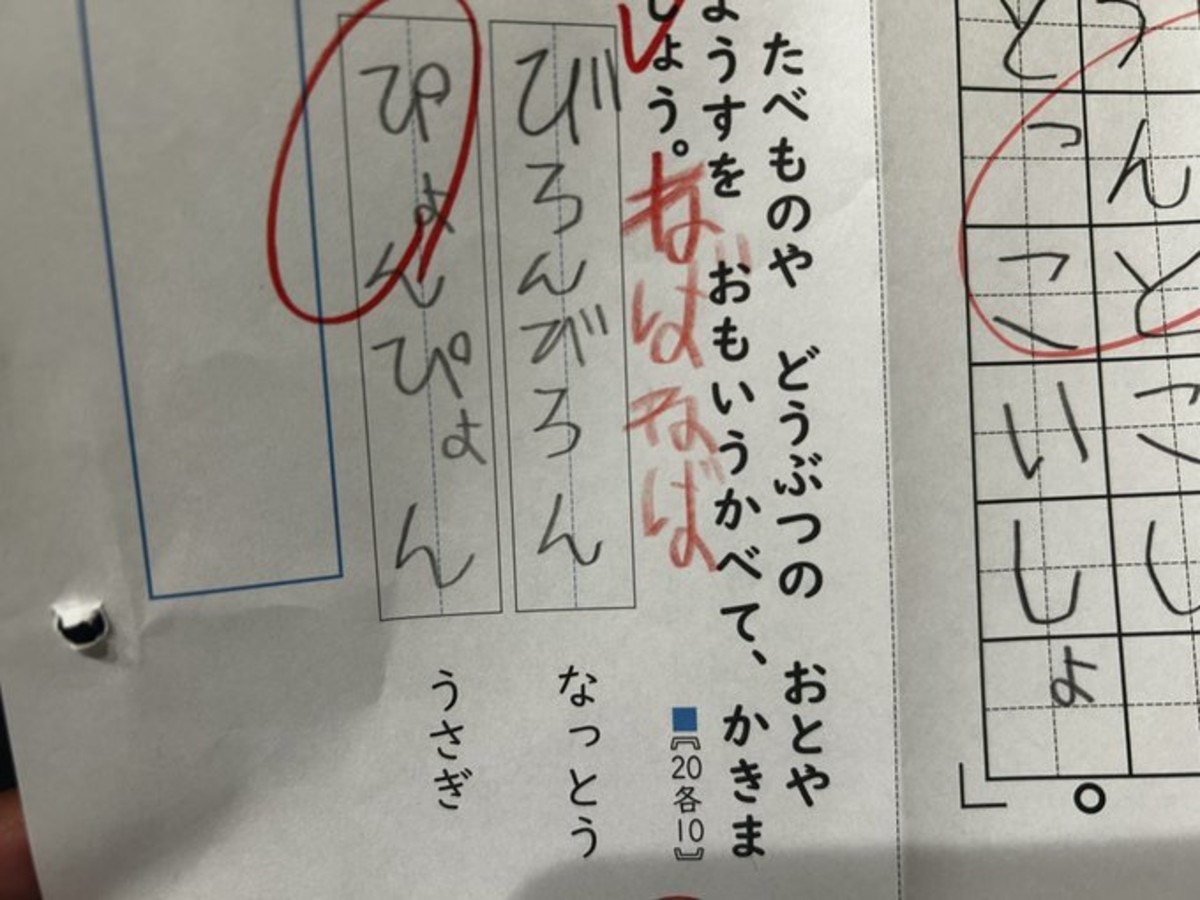 うんとこし
どっこいしょ
たべものや どうぶつの おとや
ようすを おもいうかべて、かきま
しょう。 ■〘20各10〙
ねばねば
びろんびろん なっとう
ぴょんぴょん うさぎ